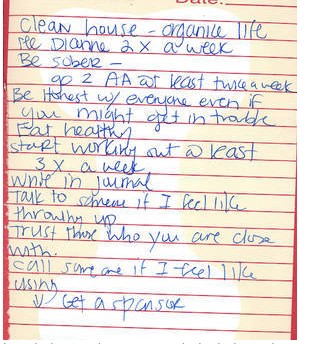 Date:
Clean house - organize life
see Dianne 2 x a week
Be sober -
go 2 AA at least twice a week
Be Honest w/ everyone even if
you might get in trouble
Eat healthy
start working out @ least
3 x a week
write in journal
Talk to someone if I feel like
throwing up
Trust those who you are close
with.
call someone if I feel like
using
↓ Get a sponsor